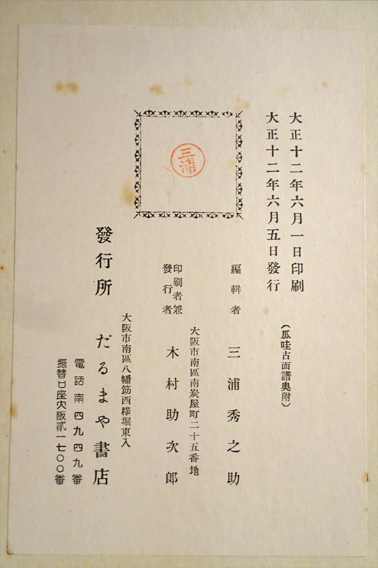 大正十二年六月一日印刷
大正十二年六月五日發行
（瓜哇古面譜奥附）
三浦
編輯者　三浦秀之助
大阪市南區南炭屋町二十五番地
印刷者兼
發行者　木村助次郎
大阪市南區八幡筋西櫓堀東入
發行所　だるまや書店
電話南四九四九番
振替口座大阪貳一七〇〇番